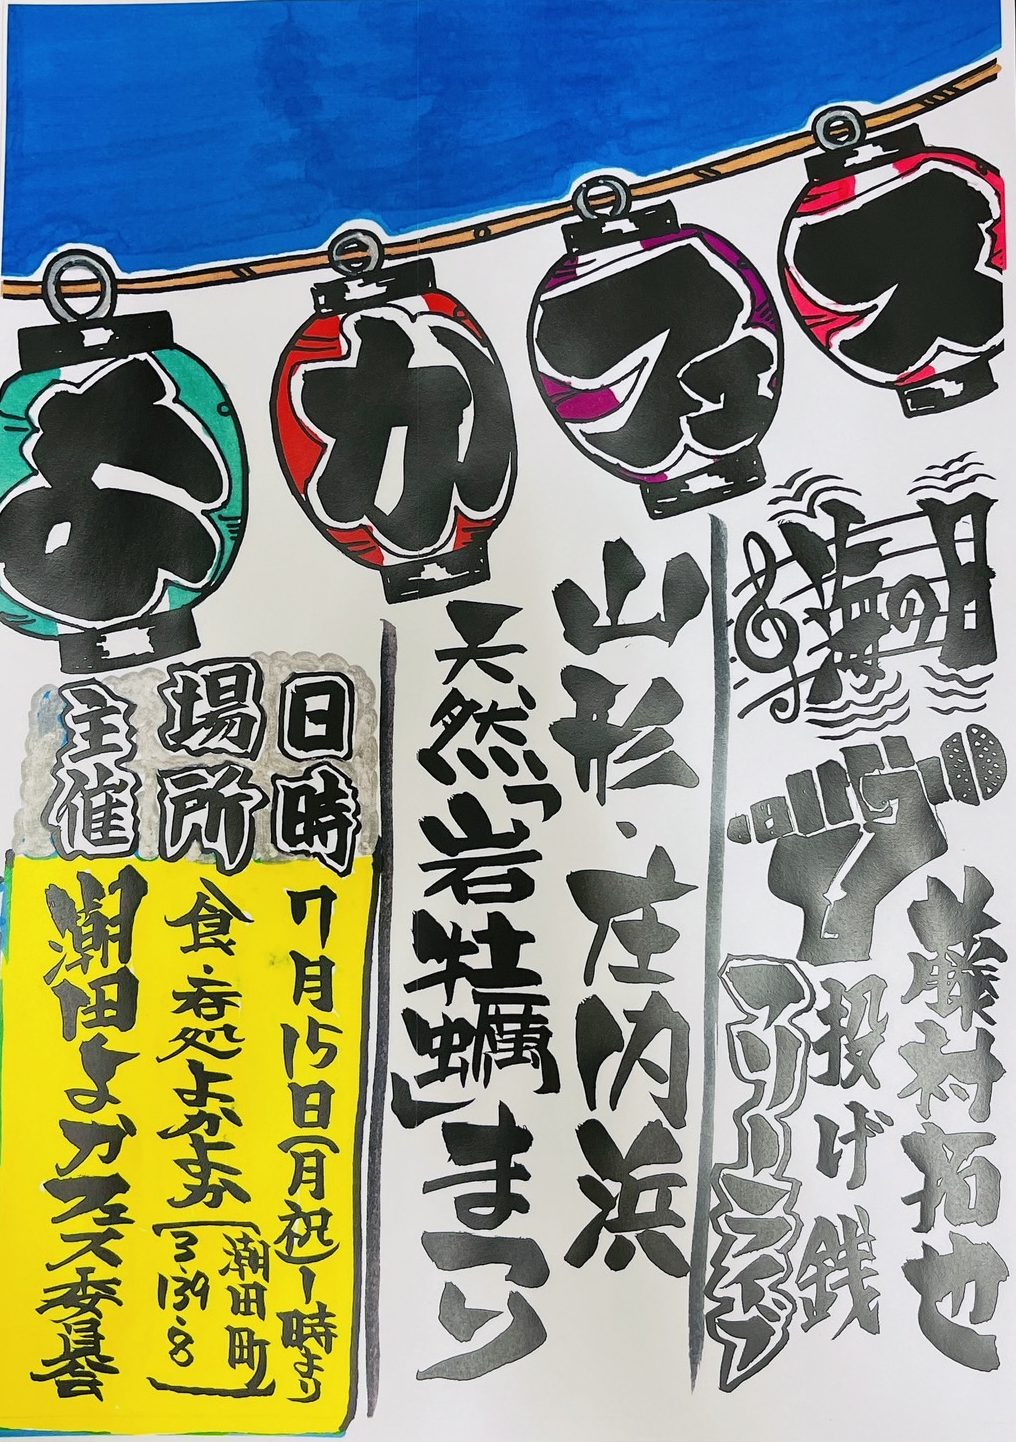 よかフェス
海の日
藤村拓也
投げ銭
フリーライブ
山形・庄内浜
天然「岩牡蠣」まつり
日時 7月15日(月祝)1時より
場所 食・呑処よかよか
[潮田町
3.139.8]
主催 潮田よかフェス委員会